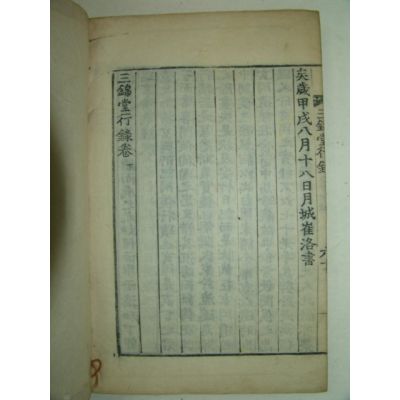 三錦堂行錄
矣歲甲戌八月十八日月城崔洛書
三錦堂行錄卷